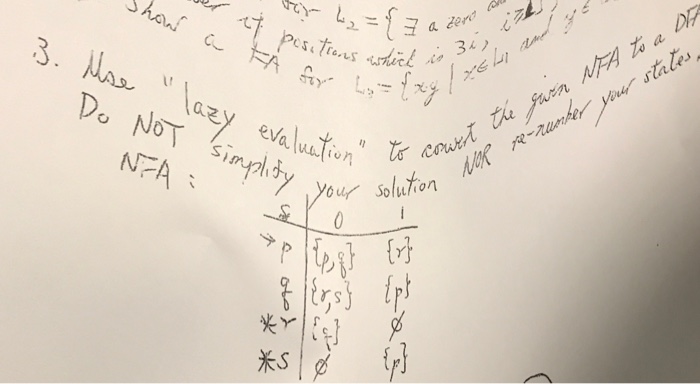 for L₂ = { ∃ a zero
of positions which is 3i, i≥1}
Show a FA for L₃ = {xy | x∈L₁ and y∈
3. Use "lazy evaluation" to convert the given NFA to a DFA
Do NOT simplify your solution NOR re-number your states.
NFA:
δ 0 1
→p {p,q} {r}
q {r,s} {p}
*r {q} ∅
*s ∅ {p}